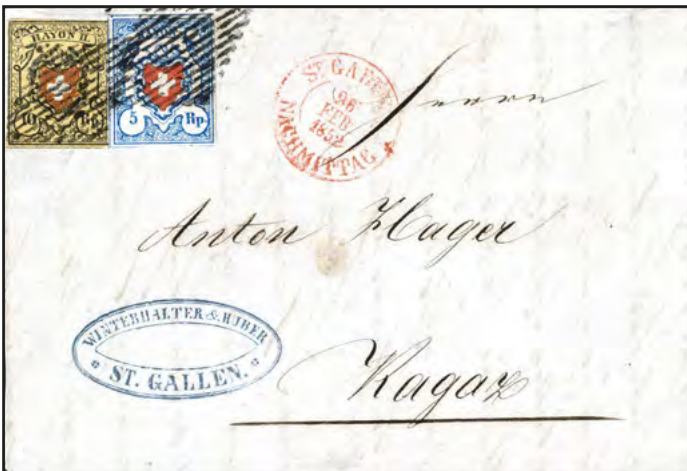 RAYON II.
10 Rp.
5 Rp.
ST GALLEN
26
FEB
1852
NACHMITTAG
Herrn
Anton Hager
WINTERHALTER & HUBER
ST. GALLEN.
Ragaz